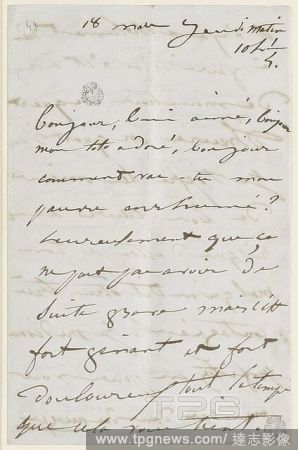 18 mars Jeudi matin
10 h ½
Bonjour, bien aimé, bonjour
mon toto adoré, bonjour
comment vas-tu mon
pauvre enrhumé?
heureusement que ça
ne peut pas avoir de
suite grave mais c'est
fort gênant et fort
douloureux tout le temps
que cela vous tient.
TPG
www.tpgnews.com/達志影像